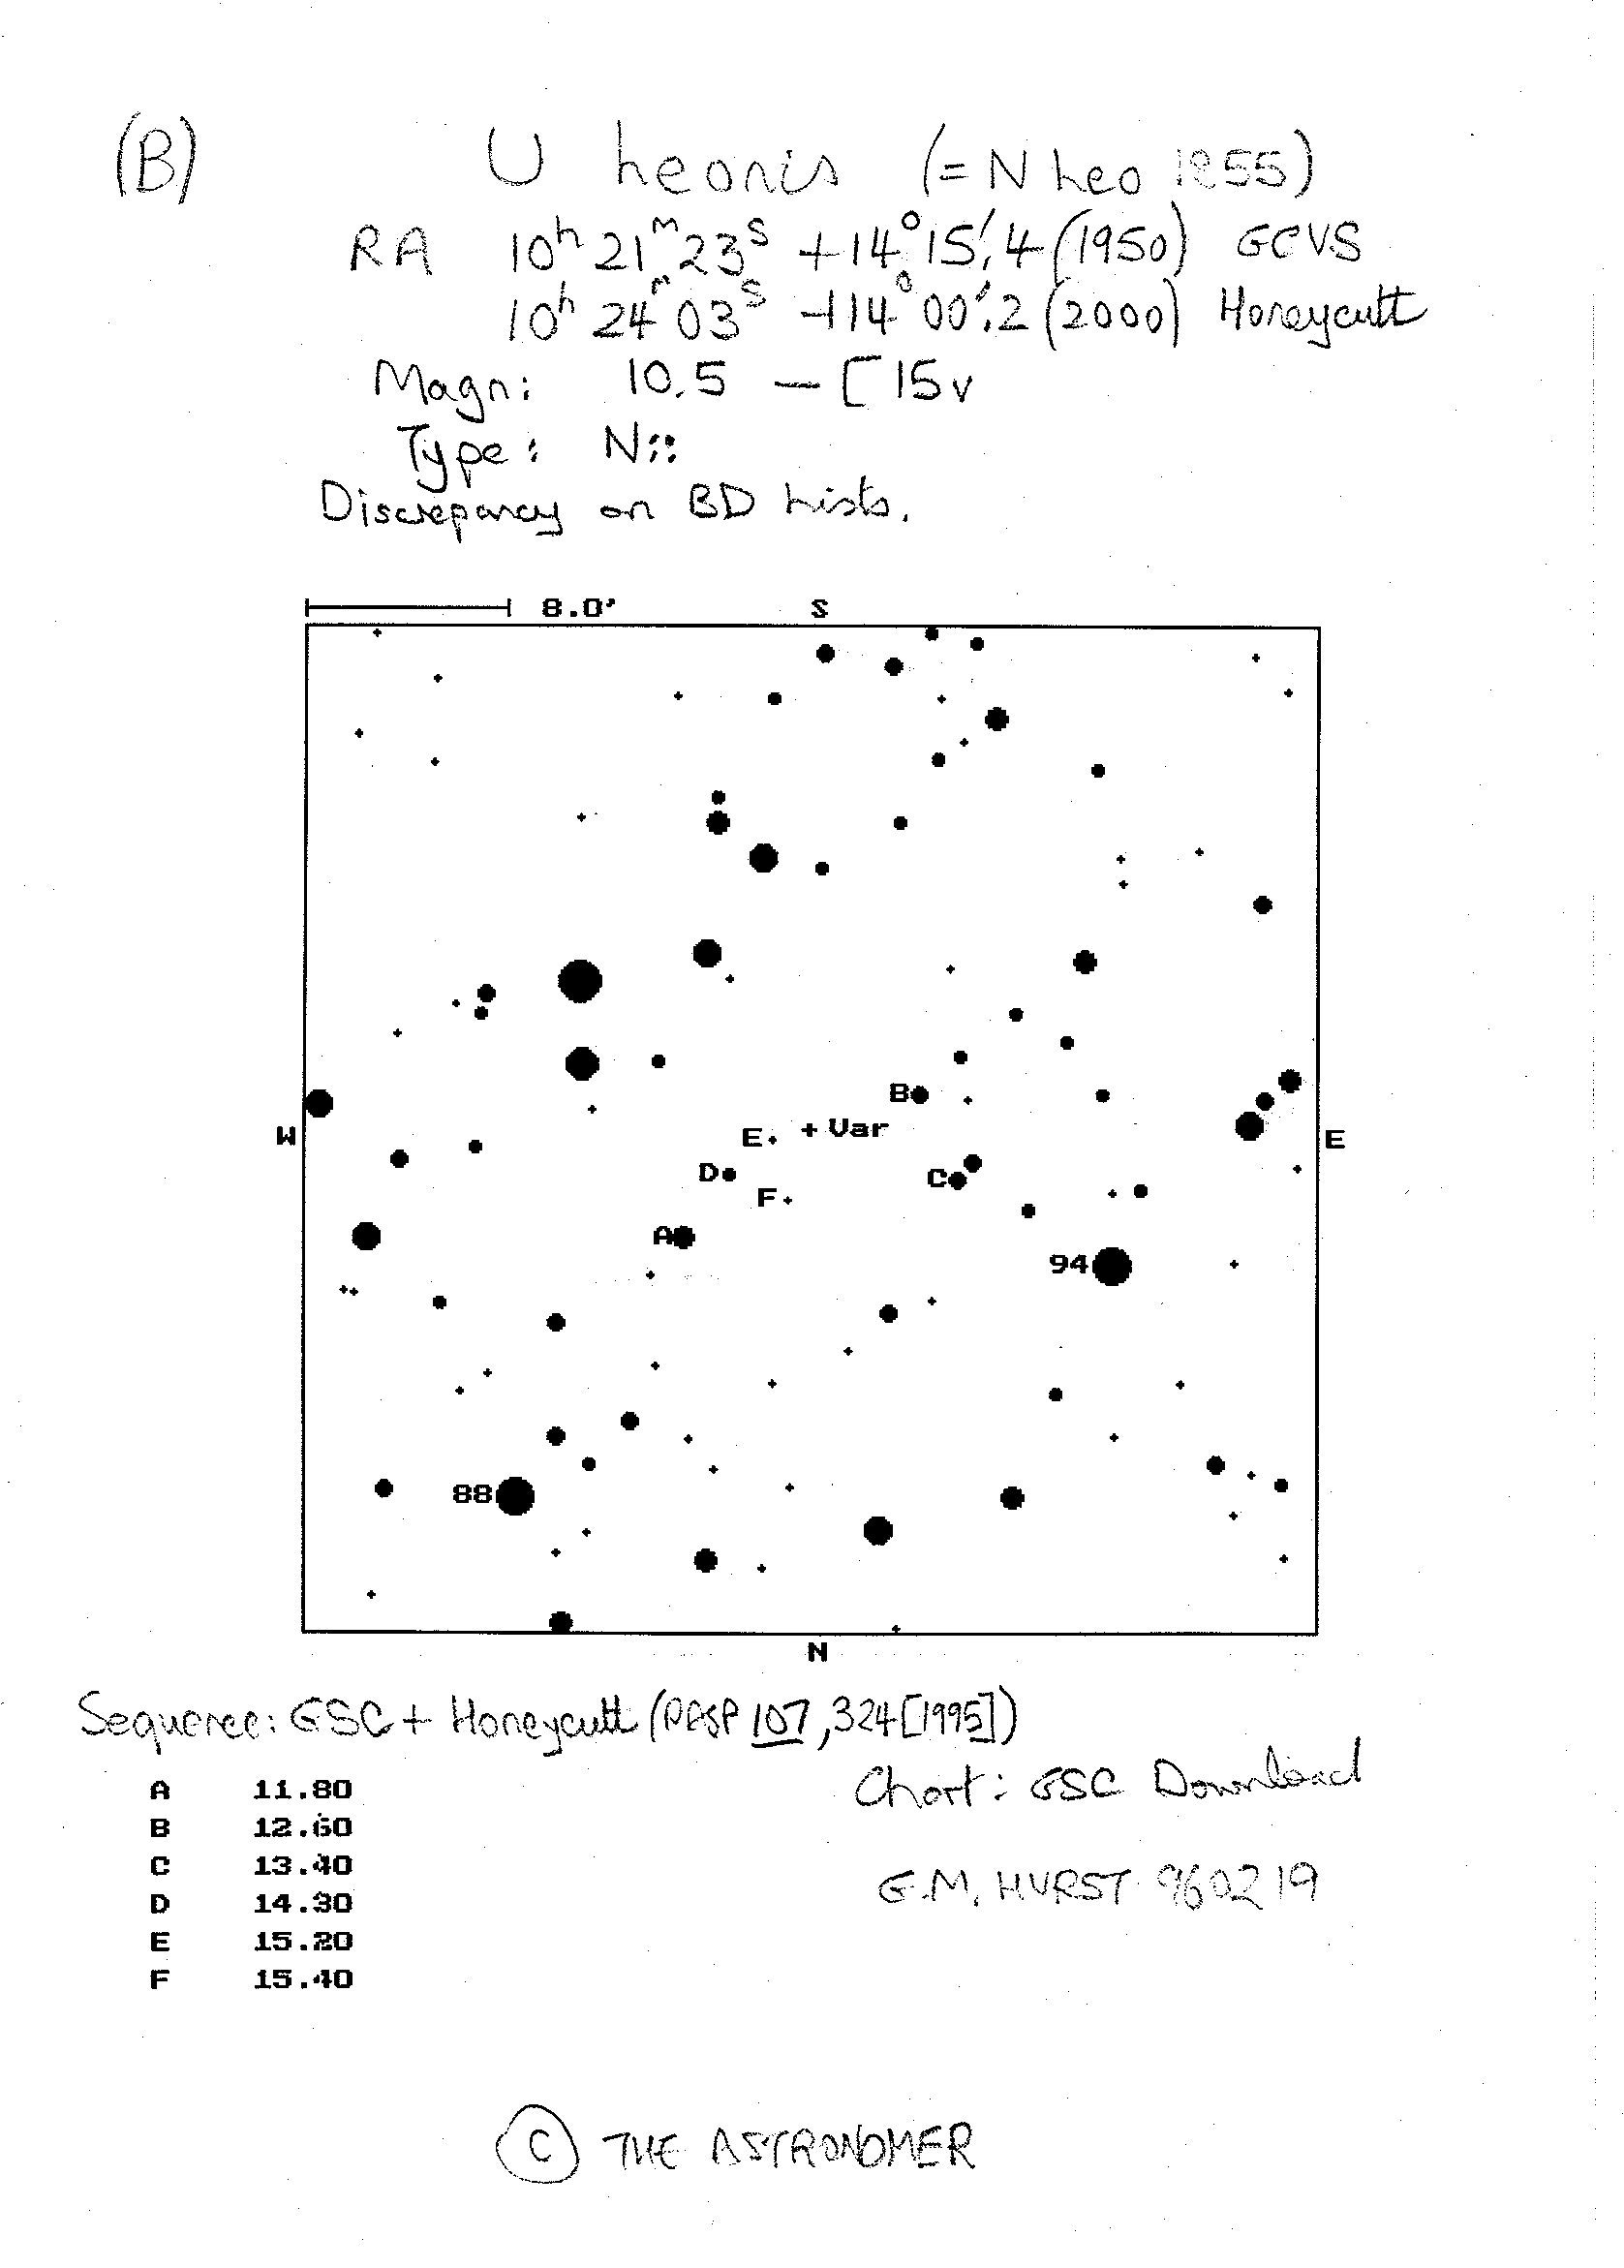 (B)
U Leonis (= N Leo 1855)
RA 10ʰ 21ᵐ 23ˢ +14° 15′.4 (1950) GCVS
10ʰ 24ᵐ 03ˢ +14° 00′.2 (2000) Honeycutt
Magn: 10.5 — [15v
Type: N::
Discrepancy on BD Lists.
8.0'
S
B
W
E
Var
E
D
C
F
A
94
88
N
Sequence: GSC + Honeycutt (PASP 107, 324 [1995])
Chart: GSC Download
A 11.80
B 12.60
C 13.40
D 14.30
E 15.20
F 15.40
G.M. HURST 960219
© THE ASTRONOMER